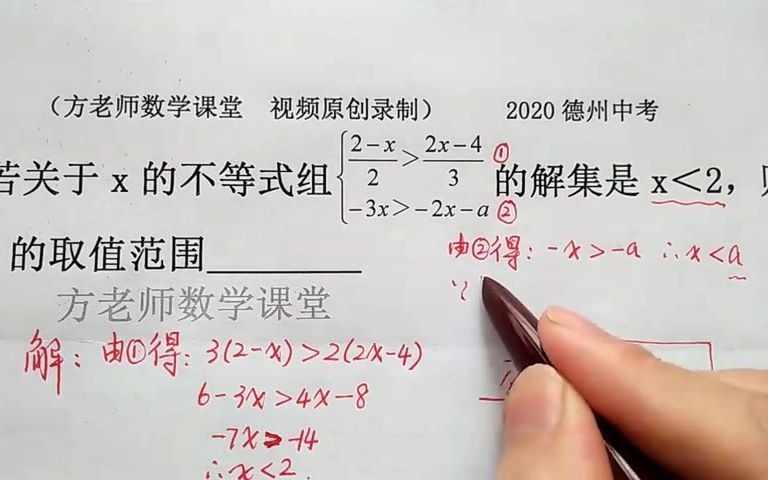 （方老师数学课堂 视频原创录制） 2020 德州中考
若关于 x 的不等式组 { (2-x)/2 > (2x-4)/3 ① 的解集是 x＜2，
-3x＞-2x-a ②
的取值范围________
由②得：-x＞-a ∴x＜a
∵
方老师数学课堂
解：由①得：3(2-x)＞2(2x-4)
6-3x＞4x-8
-7x＞-14
∴x＜2.